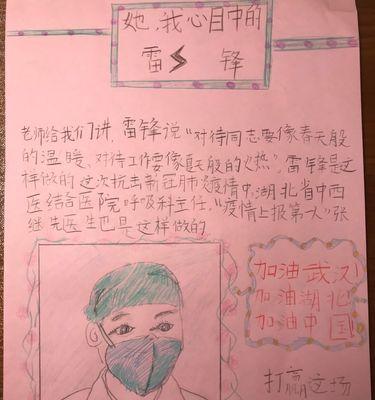 她,我心目中的
雷锋
老师给我们讲,雷锋说“对待同志要像春天般
的温暖,对待工作要像夏天般的火热”,雷锋是这
样做的这次抗击新冠肺炎疫情中,湖北省中西
医结合医院呼吸科主任,“疫情上报第一人”张
继先医生也是这样做的
加油武汉!
加油湖北
加油中国!
打赢这场